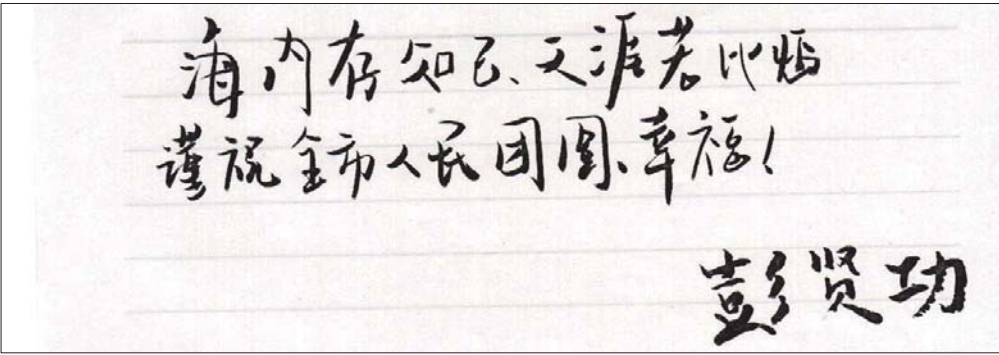 海内存知己、天涯若比邻
谨祝全市人民团圆、幸福！
彭贤功